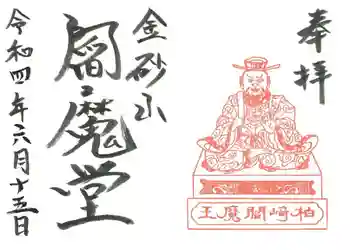 奉拝
金砂山
閻魔堂
令和四年六月十五日
柏崎閻魔王